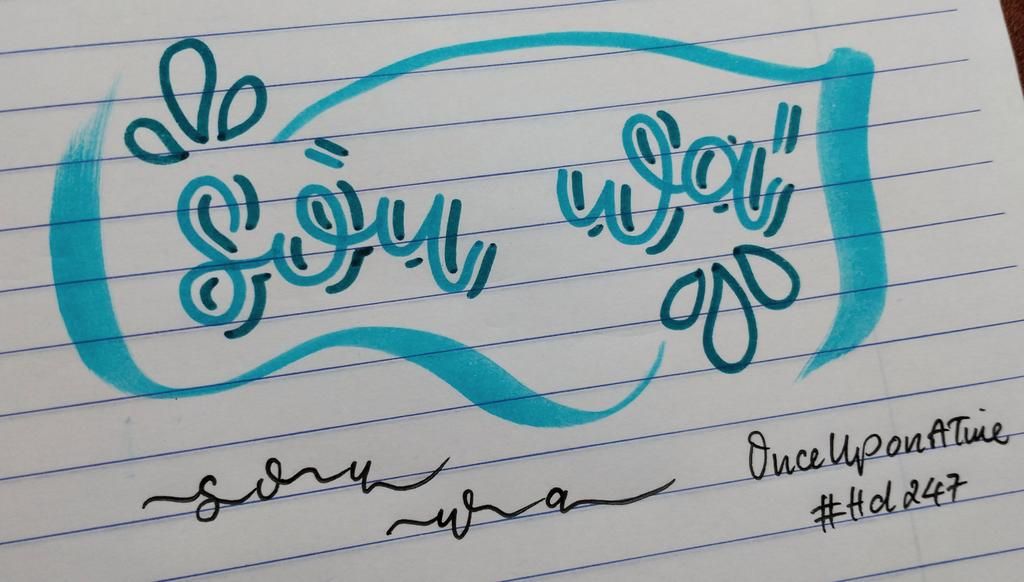 sou wa
sou
wa
OnceUponATime
#Hd247